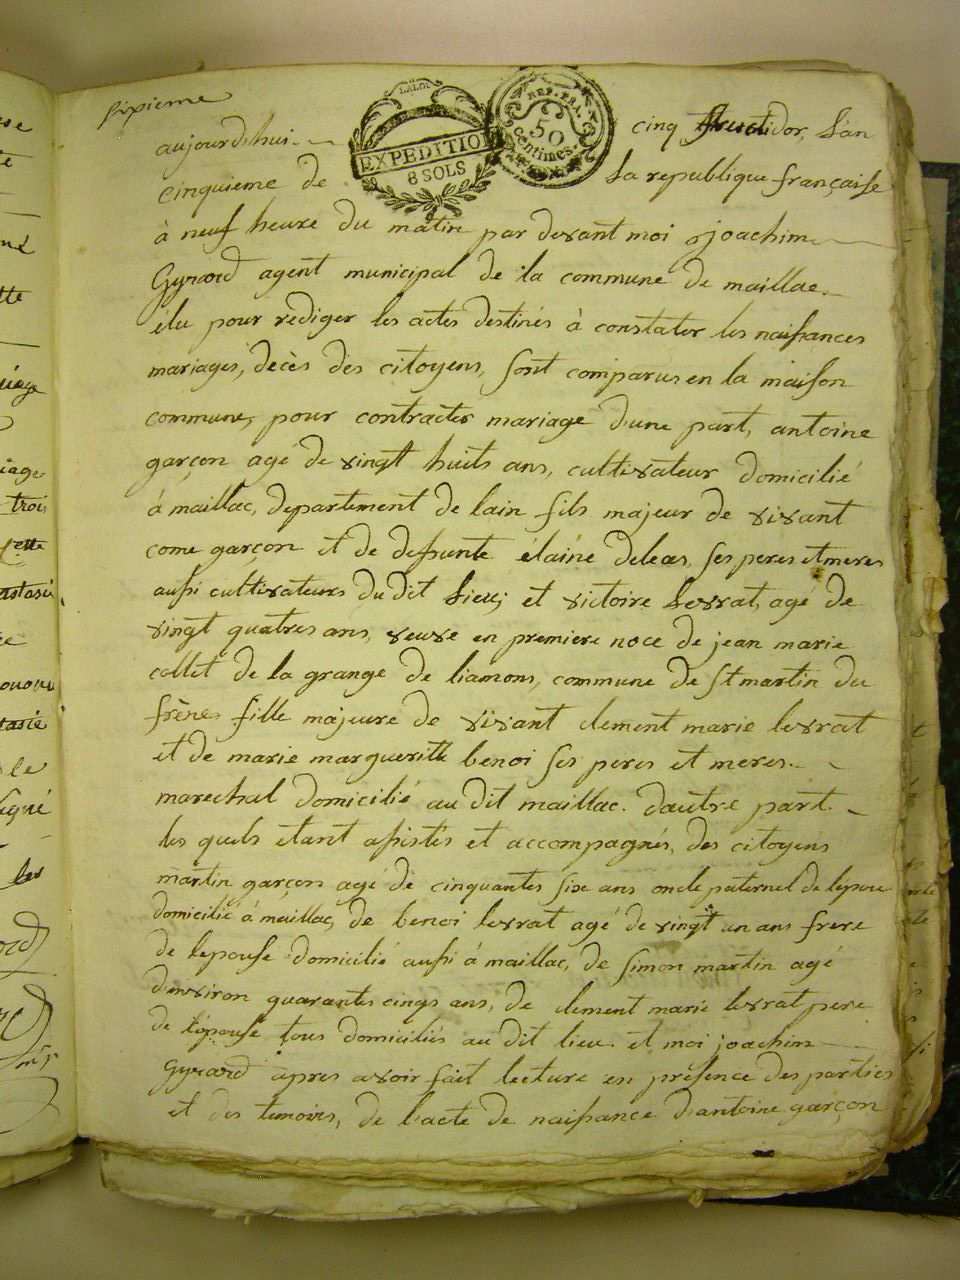 sixieme
LA LOI
EXPEDITION
8 SOLS
REP. FRA.
50
centimes.
aujourd'hui cinq fructidor, L'an
cinquieme de La republique française
à neuf heure du matin par devant moi joachim
Gyrard agent municipal de la commune de maillac
élu pour rédiger les actes destinés à constater les naissances
mariages, décès des citoyens, sont comparus en la maison
commune, pour contracter mariage d'une part, antoine
garçon agé de vingt huits ans, cultivateur domicilié
à maillac, departement de lain fils majeur de vivant
come garçon et de defunte élaine deleas, ses peres et meres
aussi cultivateurs du dit Lieu; et victoire Levrat, agé de
vingt quatres ans, veuve en premiere noce de jean marie
collet de la grange de liamons, commune de St martin du
frènes fille majeure de vivant clement marie levrat
et de marie margueritte benoi ses peres et meres
marechal domicilié au dit maillac. dautre part
les quels etant assistés et accompagnés, des citoyens
martin garçon agé de cinquantes six ans oncle paternel de lepoux
domicilié à maillac, de benoi levrat agé de vingt un ans frere
de lepouse domicilié aussi à maillac, de simon martin agé
denviron quarantes cinqs ans, de clement marie levrat pere
de lépouse tous domiciliés au dit lieu et moi joachim
Gyrard apres avoir fait lecture en présence des parties
et des temoins, de l'acte de naissance d'antoine garçon